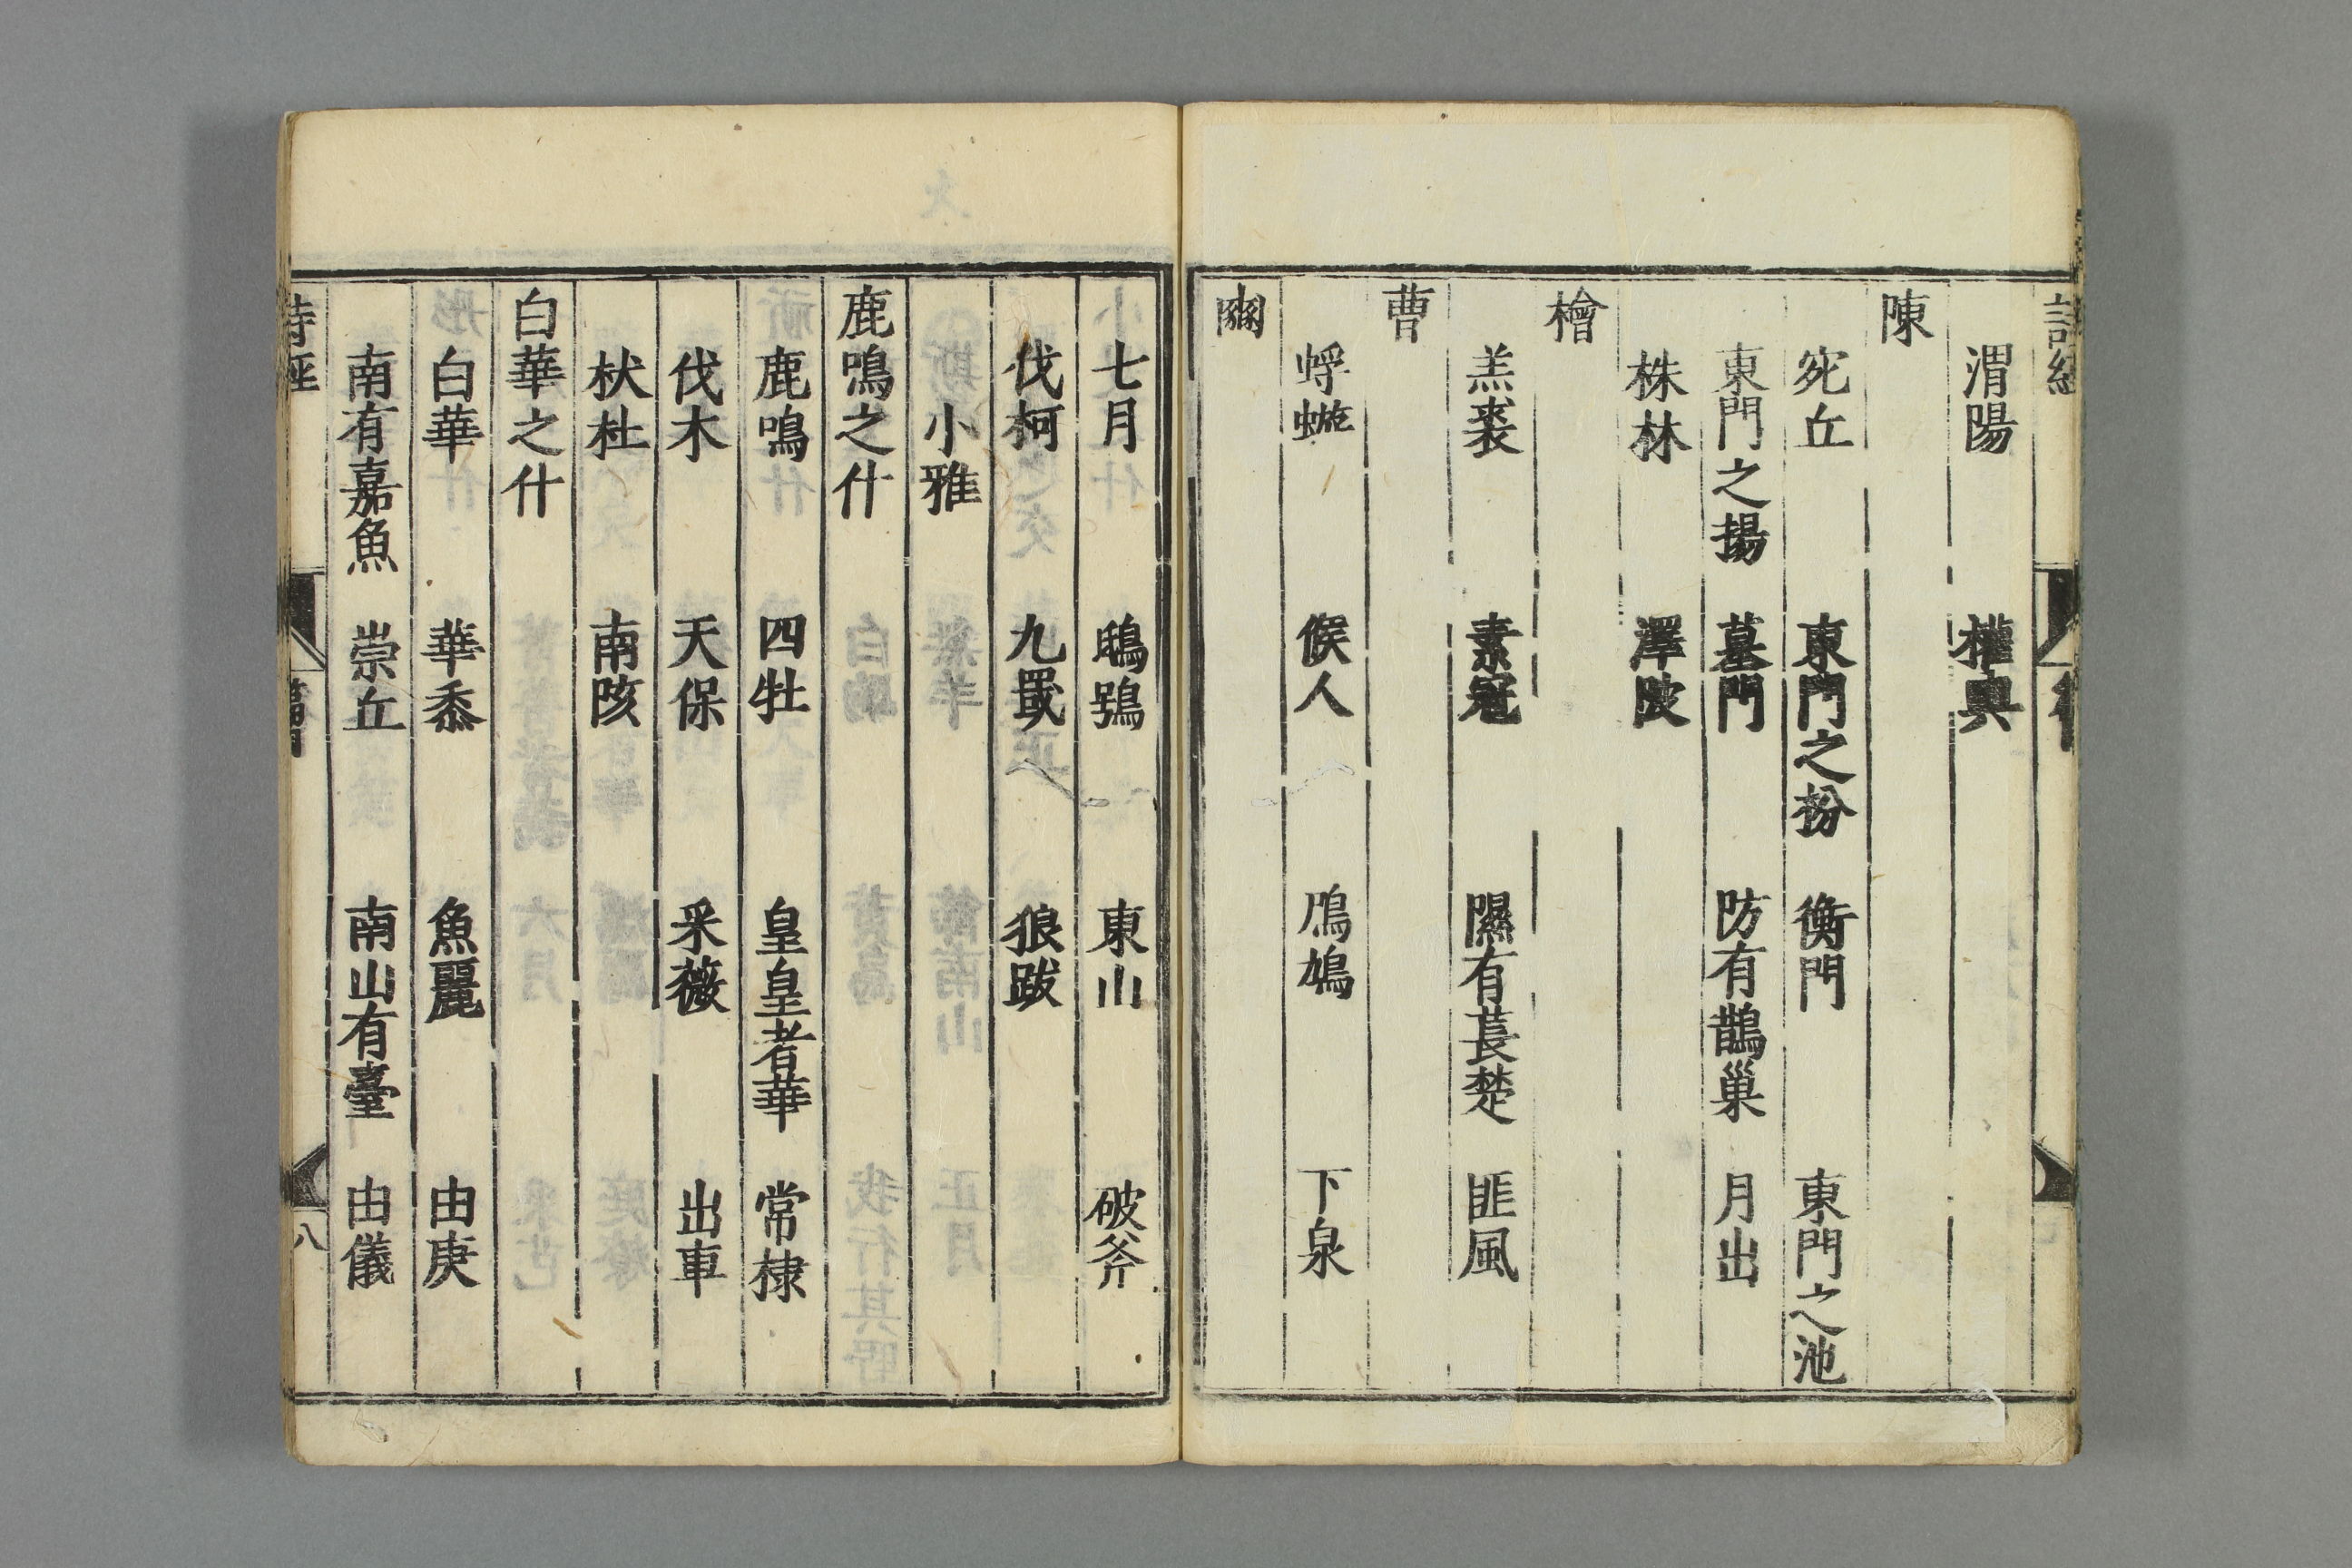 渭陽 權輿
陳
宛丘 東門之枌 衡門 東門之池
東門之揚 墓門 防有鵲巢 月出
株林 澤陂
檜
羔裘 素冠 隰有萇楚 匪風
曹
蜉蝣 候人 鳲鳩 下泉
豳
七月 鴟鴞 東山 破斧
伐柯 九罭 狼跋
小雅
鹿鳴之什
鹿鳴 四牡 皇皇者華 常棣
伐木 天保 采薇 出車
杕杜 南陔
白華之什
白華 華黍 魚麗 由庚
南有嘉魚 崇丘 南山有臺 由儀
詩經 八